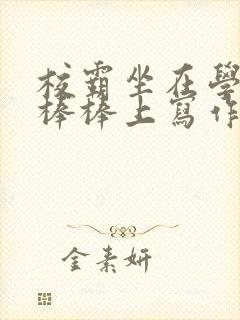 校霸坐在學
棒棒上寫作
金素妍